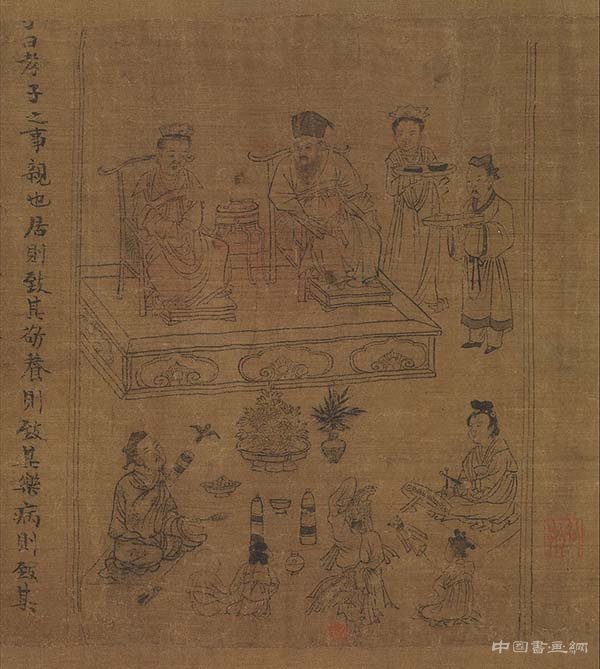 子曰孝子之事親也居則致其敬養則致其樂病則致其
中國書画網